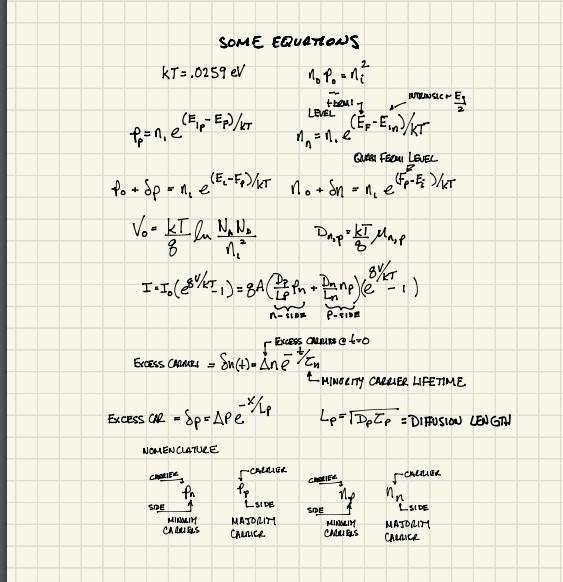 SOME EQUATIONS
kT = .0259 eV
n₀ p₀ = nᵢ²
FERMI LEVEL
INTRINSIC ~ Eg/2
p_p = nᵢ e^(E_ip - E_F)/kT
n_n = nᵢ e^(E_F - E_in)/kT
QUASI FERMI LEVEL
p₀ + δp = nᵢ e^(Eᵢ - F_p)/kT
n₀ + δn = nᵢ e^(F_n - Eᵢ)/kT
V₀ = kT/q ln N_A N_D/nᵢ²
D_n,p = kT/q μ_n,p
I = I₀(e^qV/kT - 1) = qA(D_p/L_p p_n + D_n/L_n n_p)(e^qV/kT - 1)
n-SIDE P-SIDE
EXCESS CARRIERS @ t=0
EXCESS CARRIERS = δn(t) = Δn e^-t/τ_n
MINORITY CARRIER LIFETIME
EXCESS CAR = δp = ΔP e^-x/L_p
L_p = √D_p τ_p = DIFFUSION LENGTH
NOMENCLATURE
CARRIER
p_n
SIDE
MINORITY CARRIERS
CARRIER
p_p
SIDE
MAJORITY CARRIER
CARRIER
n_p
SIDE
MINORITY CARRIERS
CARRIER
n_n
SIDE
MAJORITY CARRIER